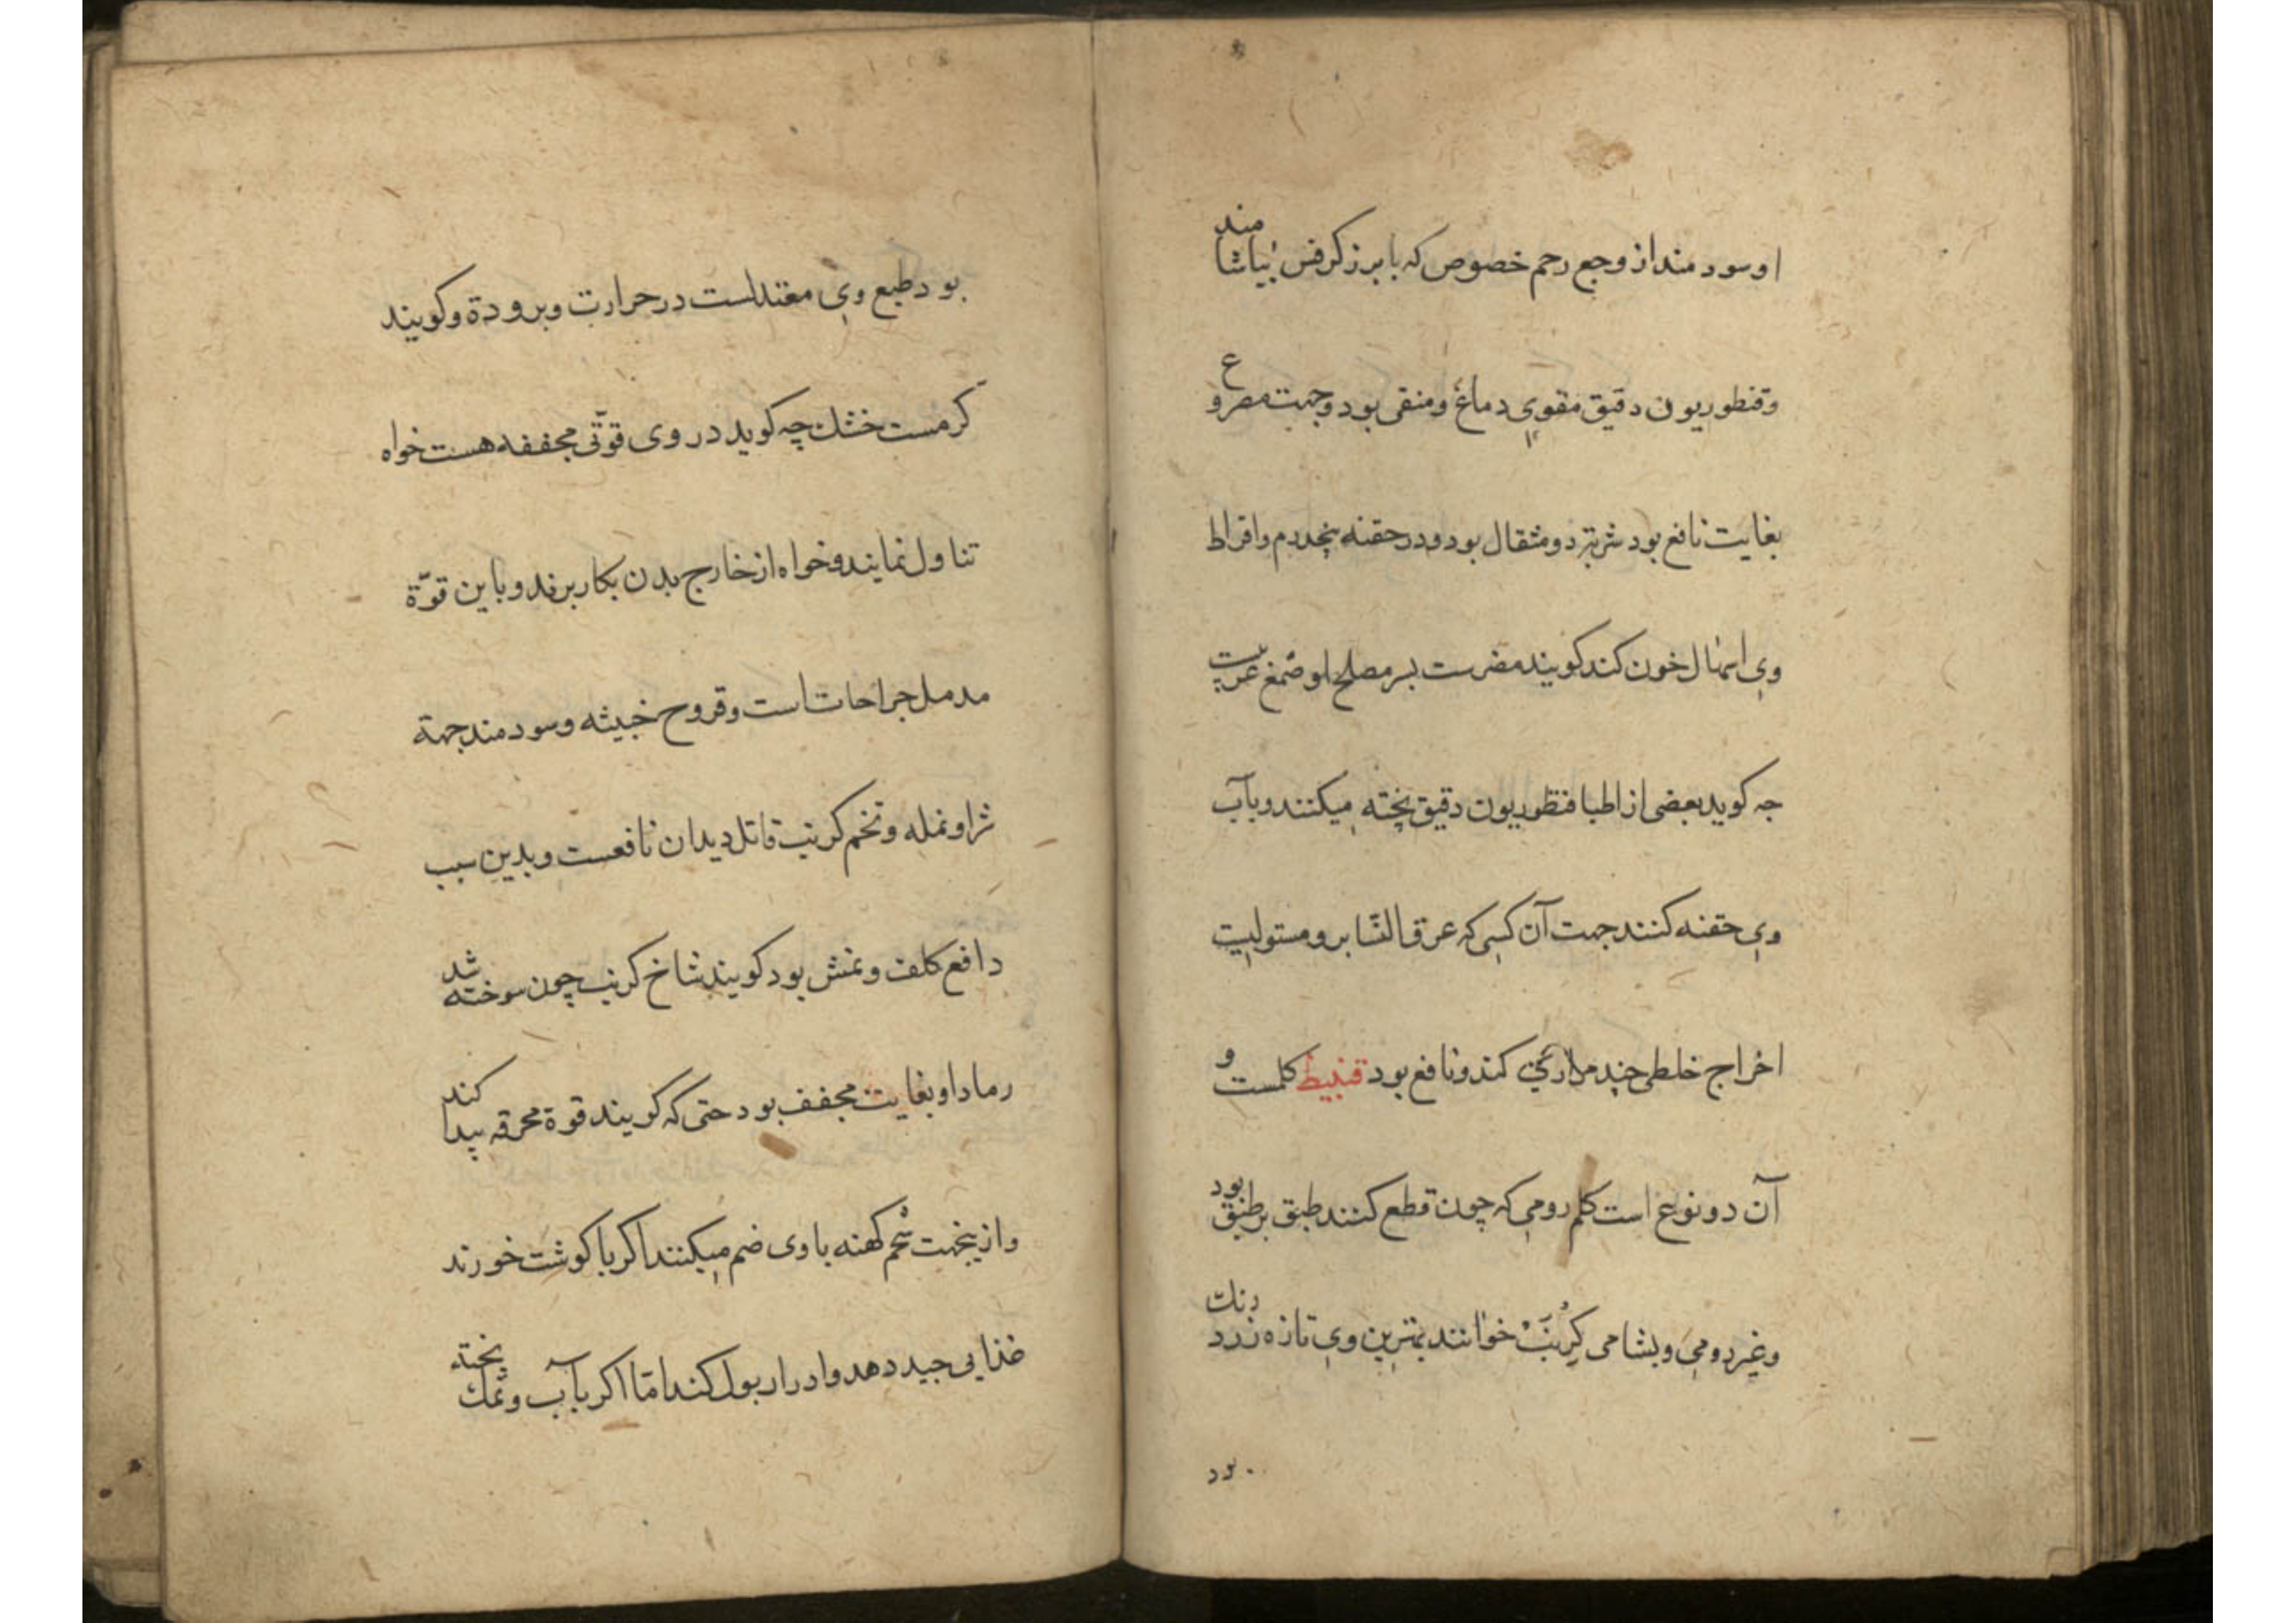 او سود مند از وجع رحم خصوص که با برز کرفس بیاشامند
وقنطوریون دقیق مقوی دماغ ومنقی بود وجهت مصروع
بغایت نافع بود شربتی دو مثقال بود ودر حقنه پنجدرم وافراط
وی اسهال خون کند کویند مضرست بسر مصلح او صمغ عربیت
جه کوید بعضی از اطبا قنطوریون دقیق پخته میکنند وبآب
وی حقنه کنند جهت آن کسی که عرق النسا برو مستولیت
اخراج خلطی چند مراری کند ونافع بود قنبیط کلمست و
آن دو نوع است کلم رومی که چون قطع کنند طبق بر طبق بود
وغیر رومی وبشامی کرنب خوانند بهترین وی تازه زرد رنك
بود
بود طبع وی معتدلست در حرارت وبرودة وکویند
کرمست خشك چه کوید در وی قوّتی مجففه هست خواه
تناول نمایند وخواه از خارج بدن بکار برند وباین قوّة
مدمل جراحات است وقروح خبیثه وسود مند جهة
شرا ونمله وتخم کرنب قاتل دیدان نافعست وبدین سبب
دافع کلف ونمش بود کویند شاخ کرنب چون سوخته شد
رماد او بغایت مجفف بود حتی که کویند قوة محرقه پیدا کند
وازینجهت شحم کهنه با وی ضم میکنند اکر با کوشت خورند
غذایی جید دهد وادرار بول کند امّا اکر بآب ونمك پخته